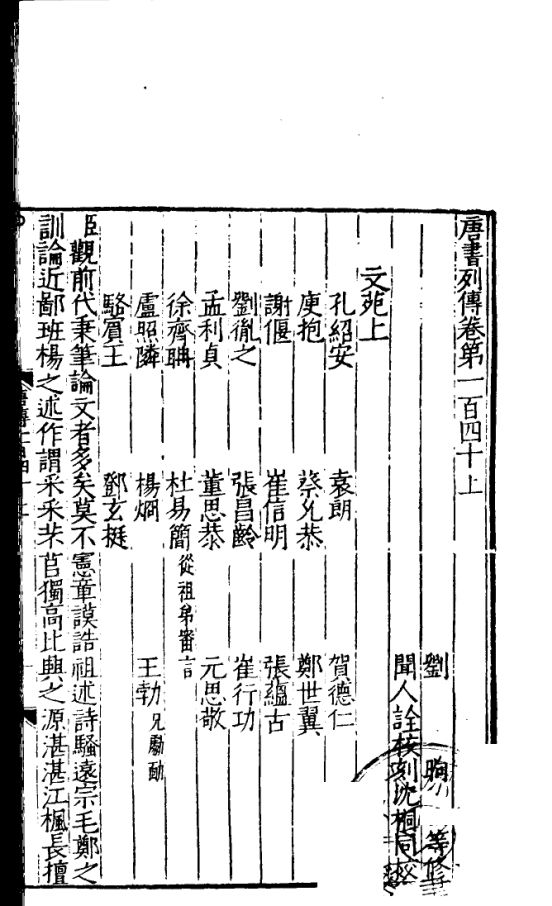 唐書列傳卷第一百四十上
劉 昫 等修
聞人詮校刻沈桐同校
文苑上
孔紹安 袁朗 賀德仁
庾抱 蔡允恭 鄭世翼
謝偃 崔信明 張蘊古
劉胤之 張昌齡 崔行功
孟利貞 董思恭 元思敬
徐齊聃 杜易簡從祖弟審言
盧照隣 楊烱 王勃兄勮勔
駱賓王 鄧玄挺
臣觀前代秉筆論文者多矣莫不憲章謨誥祖述詩騷遠宗毛鄭之
訓論近鄙班楊之述作謂采采芣苢獨高比興之源湛湛江楓長擅